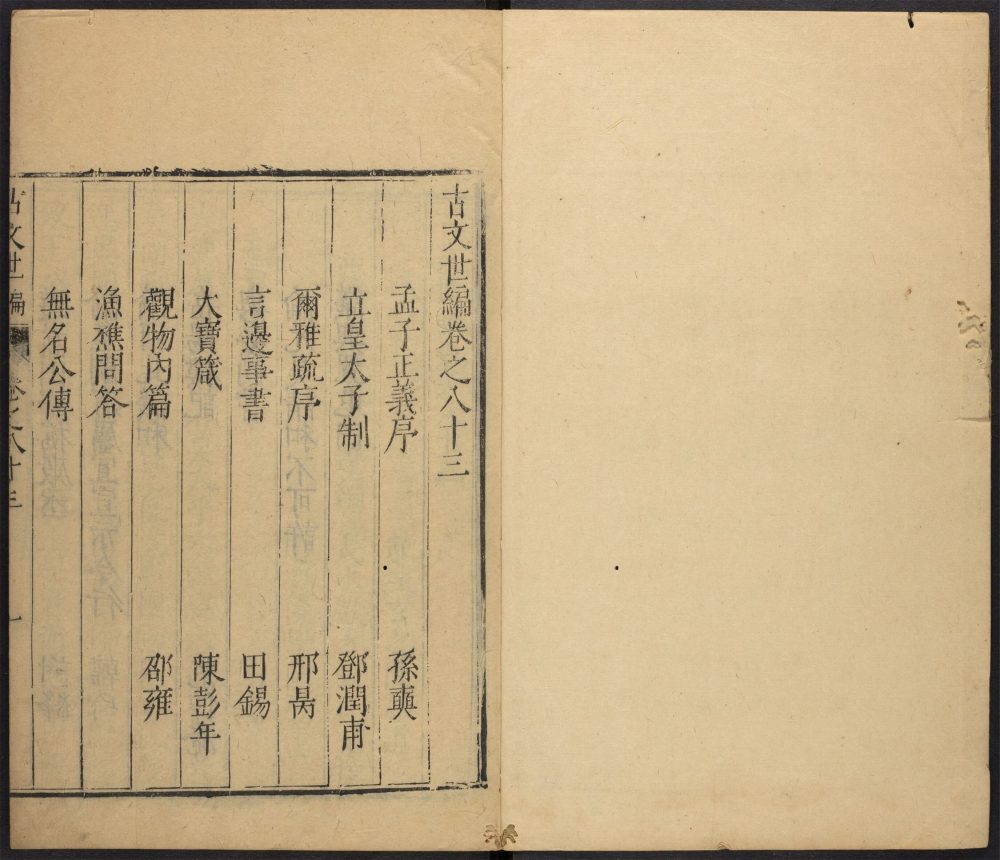 古文世編卷之八十三
孟子正義序 孫奭
立皇太子制 鄧潤甫
爾雅疏序 邢昺
言邊事書 田錫
大寶箴 陳彭年
觀物內篇 邵雍
漁樵問答
無名公傳
古文世編 卷之八十三 一